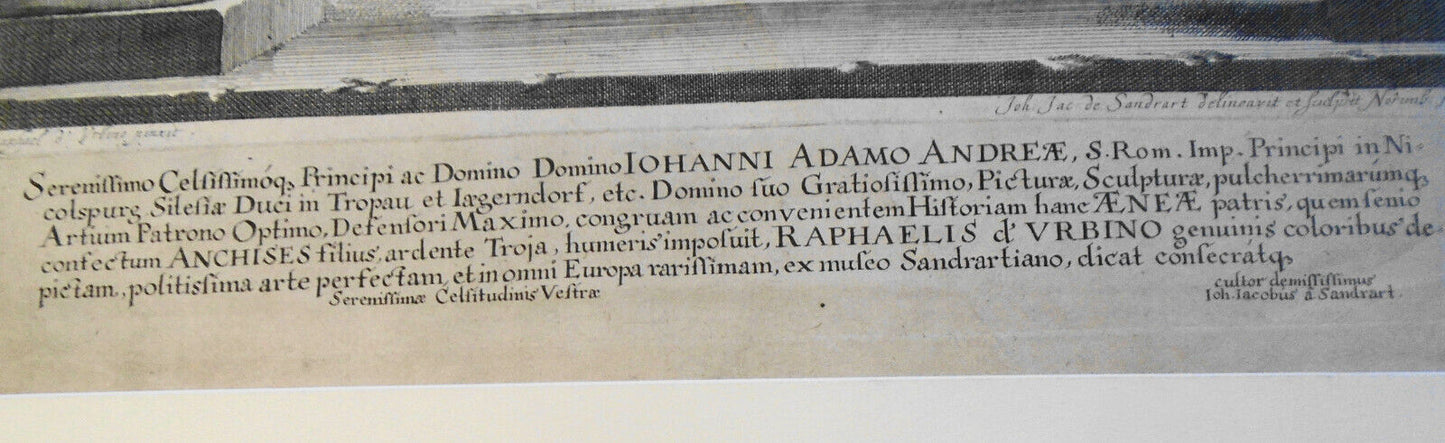 Joh. Jac. de Sandrart delineavit et sculpsit Norimb.
d'Urbino pinxit.
Serenissimo Celsissimóq; Principi ac Domino Domino IOHANNI ADAMO ANDREÆ, S. Rom. Imp. Principi in Ni-
colspurg Silesiæ Duci in Tropau et Iægerndorf, etc. Domino suo Gratiosissimo, Picturæ, Sculpturæ, pulcherrimarúmq;
Artium Patrono Optimo, Defensori Maximo, congruam ac convenientem Historiam hanc ÆNEÆ patris, quem senio
confectum ANCHISES filius, ardente Troja, humeris imposuit, RAPHAELIS d'URBINO genuinis coloribus de-
pictam, politissima arte perfectam, et in omni Europa rarissimam, ex museo Sandrartiano, dicat consecrátq;
Serenissimæ Celsitudinis Vestræ
cultor demississimus
Ioh. Iacobus â Sandrart.